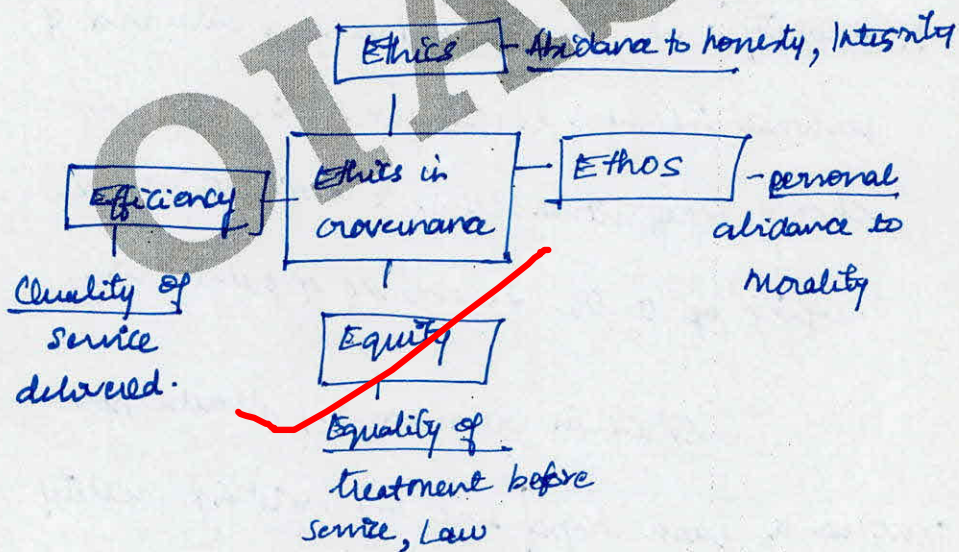 Ethics - Abidance to honesty, Integrity
Efficiency
Ethics in
Governance
Ethos - personal
abidance to
Morality
Quality of
service
delivered.
Equity
Equality of
treatment before
service, Law
OIA